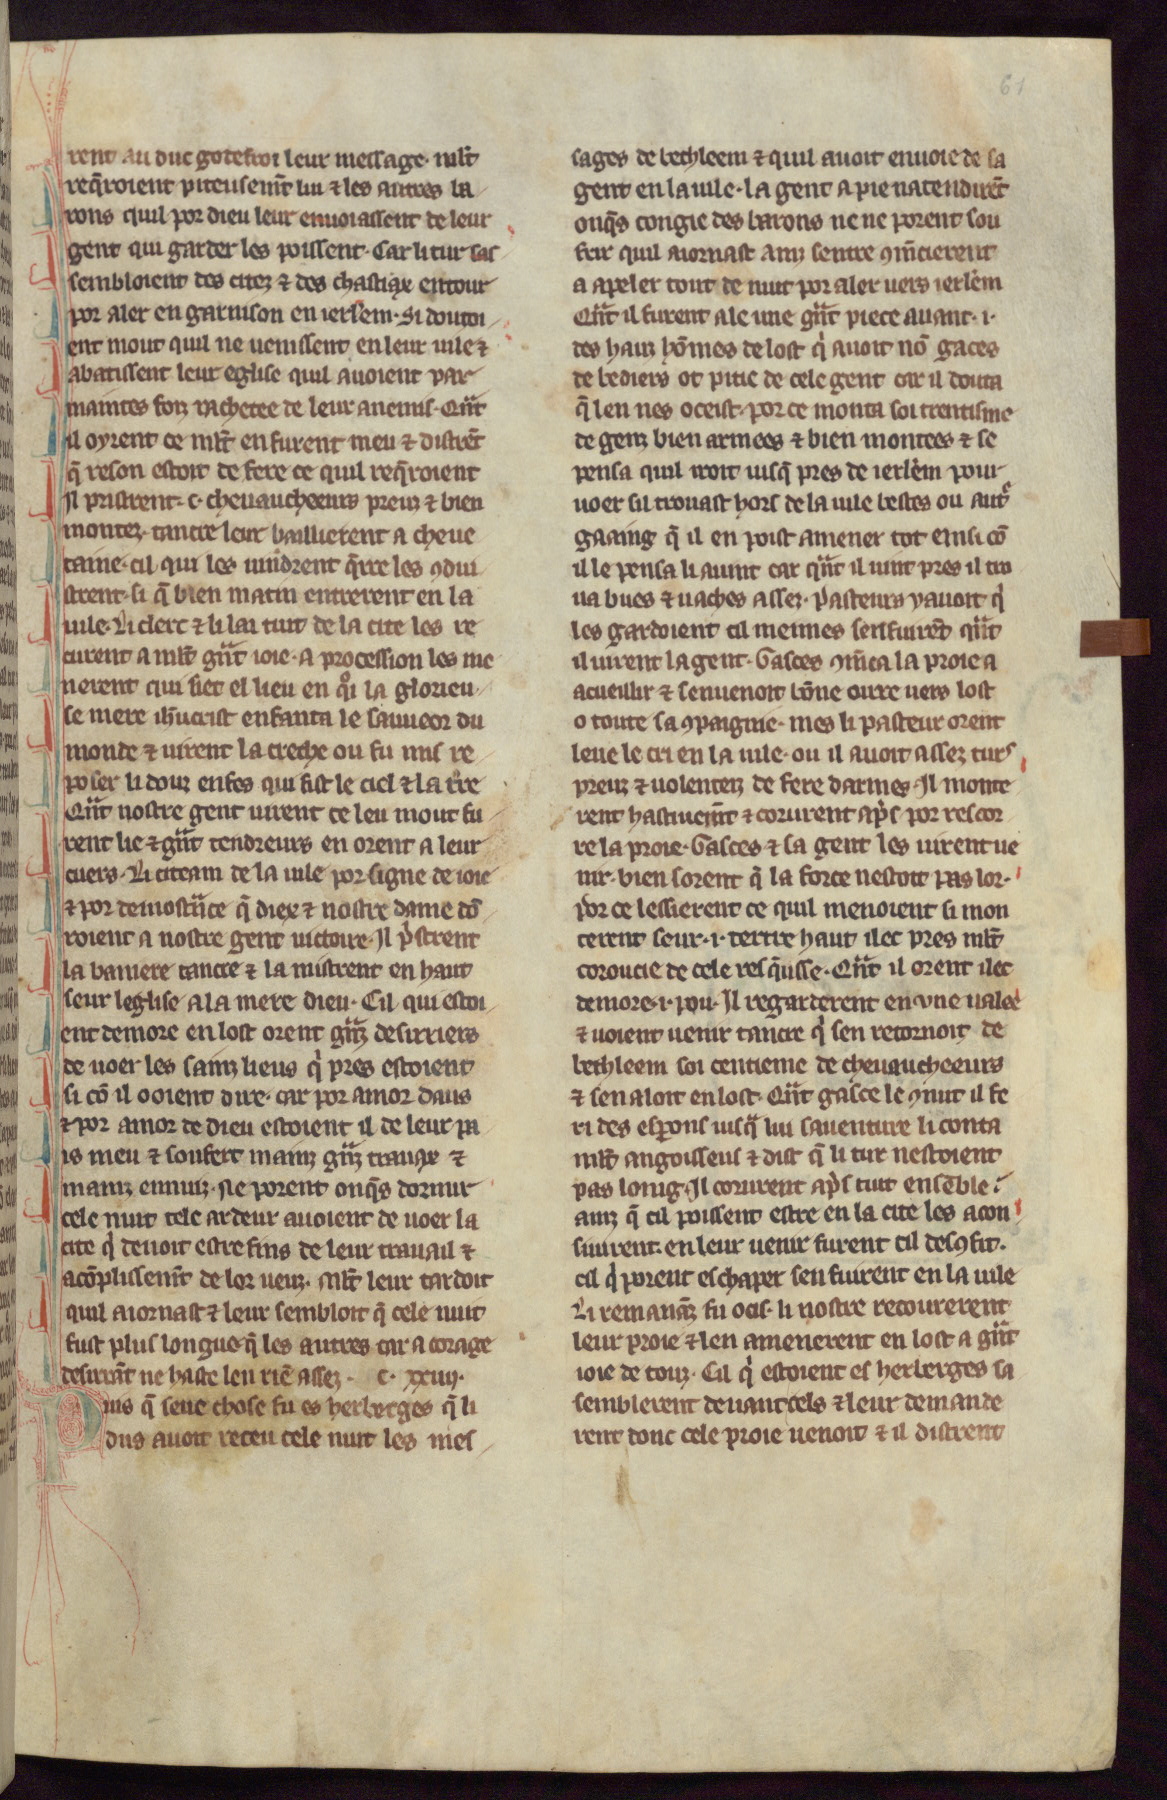 61
rent au duc godefroi leur message. mlt̄
req̄roient piteusemt̄ lui ⁊ les autres ba
rons quil por dieu leur enuoiassent de leur
gent qui garder les poissent. Car li tur sas
sembloient des citez ⁊ des chastiax entour
por aler en garnison en ierl̄em. Si doutoi
ent mout quil ne uenissent en leur uile ⁊
abatissent leur eglise quil auoient par
maintes foiz rachetee de leur anemis. Qn̄t
il oyrent ce mlt̄ en furent meu ⁊ distrēt
q̄ reson estoit de fere ce quil req̄roient
Il pristrent .c. cheuaucheeurs preuz ⁊ bien
montez. tancre leur baillierent a cheue
taine. cil qui les uindrent q̄rre les ꝯdui
strent. si q̄ bien matin entrerent en la
uile. Li clerc ⁊ li lai tuit de la cite les re
curent a mlt̄ gn̄t ioie. a procession les me
nerent qui siet el lieu en q̊i la glorieu
se mere ih̄ucrist enfanta le sauueor du
monde ⁊ uirent la creche ou fu mis re
poser li douz enfes qui fist le ciel ⁊ la t̄re
Qn̄t nostre gent uirent ce leu mout fu
rent lie ⁊ gn̄t tendreurs en orent a leur
cuers. Li citeain de la uile por signe de ioie
⁊ por demostn̄ce q̄ diex ⁊ nostre dame dō
roient a nostre gent uictoire. Il pͥstrent
la baniere tancre ⁊ la mistrent en haut
seur leglise a la mere dieu. Cil qui estoi
ent demore en lost orent gn̄z desirriers
de uoer les sainz lieus qͥ pres estoient
si cō il ooient dire. car por amor daus
⁊ por amor de dieu estoient il de leur pa
is meu ⁊ soufert mainz gn̄z trauax ⁊
mainz ennuiz. Ne porent onq̄s dormir
cele nuit tele ardeur auoient de uoer la
cite qͥ deuoit estre fins de leur trauail ⁊
acōplissemt̄ de lor ueuz. Mlt̄ leur tardoit
quil aiornast ⁊ leur sembloit q̄ cele nuit
fust plus longue q̄ les autres car a corage
desirrāt ne haste len riē assez. c. xxiiij.
Puis q̄ seue chose fu es herberges q̄ li
dus auoit receu cele nuit les mes
sages de bethleem ⁊ quil auoit enuoie de sa
gent en la uile. la gent a pie natendirēt
onq̄s congie des barons ne ne porent sou
frir quil aiornast ainz sentre ꝯm̄cierent
a apeler tout de nuit por aler uers ierl̄em
Qn̄t il furent ale une gn̄t piece auant .i.
des hauz hōmes de lost qͥ auoit nō gaces
de bediers ot pitie de cele gent car il douta
q̄ len nes oceist. por ce monta soi trentisme
de genz bien armees ⁊ bien montees ⁊ se
pensa quil iroit iusq̄ pres de ierl̄em pour
uoer sil trouast hors de la uile bestes ou autͤ
gaaing q̄ il en poist amener tot einsi cō
il le pensa li auint car qn̄t il uint pres il tro
ua bues ⁊ uaches assez. Pasteurs y auoit qͥ
les gardoient cil meimes sen fuirēt qn̄t
il uirent la gent. Gasces ꝯm̄ca la proie a
acueillir ⁊ senuenoit bōne oirre uers lost
o toute sa ꝯpaignie. mes li pasteur orent
leue le cri en la uile. ou il auoit assez turs
preuz ⁊ uolenteiz de fere darmes. Il monte
rent hastiuemt̄ ⁊ corurent apͥs por rescor
re la proie. Gasces ⁊ sa gent les uirent ue
nir. bien sorent q̄ la force nestoit pas lor.
Por ce lessierent ce quil menoient si mon
terent seur .i. tertre haut ilec pres mlt̄
coroucie de cele resq̄usse. Qn̄t il orent ilec
demore .i. pou. Il regarderent en vne ualee
⁊ uoient uenir tancre qͥ sen retornoit de
bethleem soi centieme de cheuaucheeurs
⁊ sen aloit en lost. Qn̄t gasce le ꝯnut il fe
ri des esperons iusq̄ lui sauenture li conta
mlt̄ angoisseus ⁊ dist q̄ li tur nestoient
pas loing. Il corurent apͥs tuit ensēble.
ainz q̄ cil poissent estre en la cite les acon
siuirent. en leur uenir furent cil desꝯfit.
cil qͥ porent eschaper sen fuirent en la uile
Li remanāz fu ocis. li nostre recourerent
leur proie ⁊ len amenerent en lost a gn̄t
ioie de touz. Cil qͥ estoient es herberges sa
semblerent deuant cels ⁊ leur demande
rent donc cele proie uenoit ⁊ il distrent